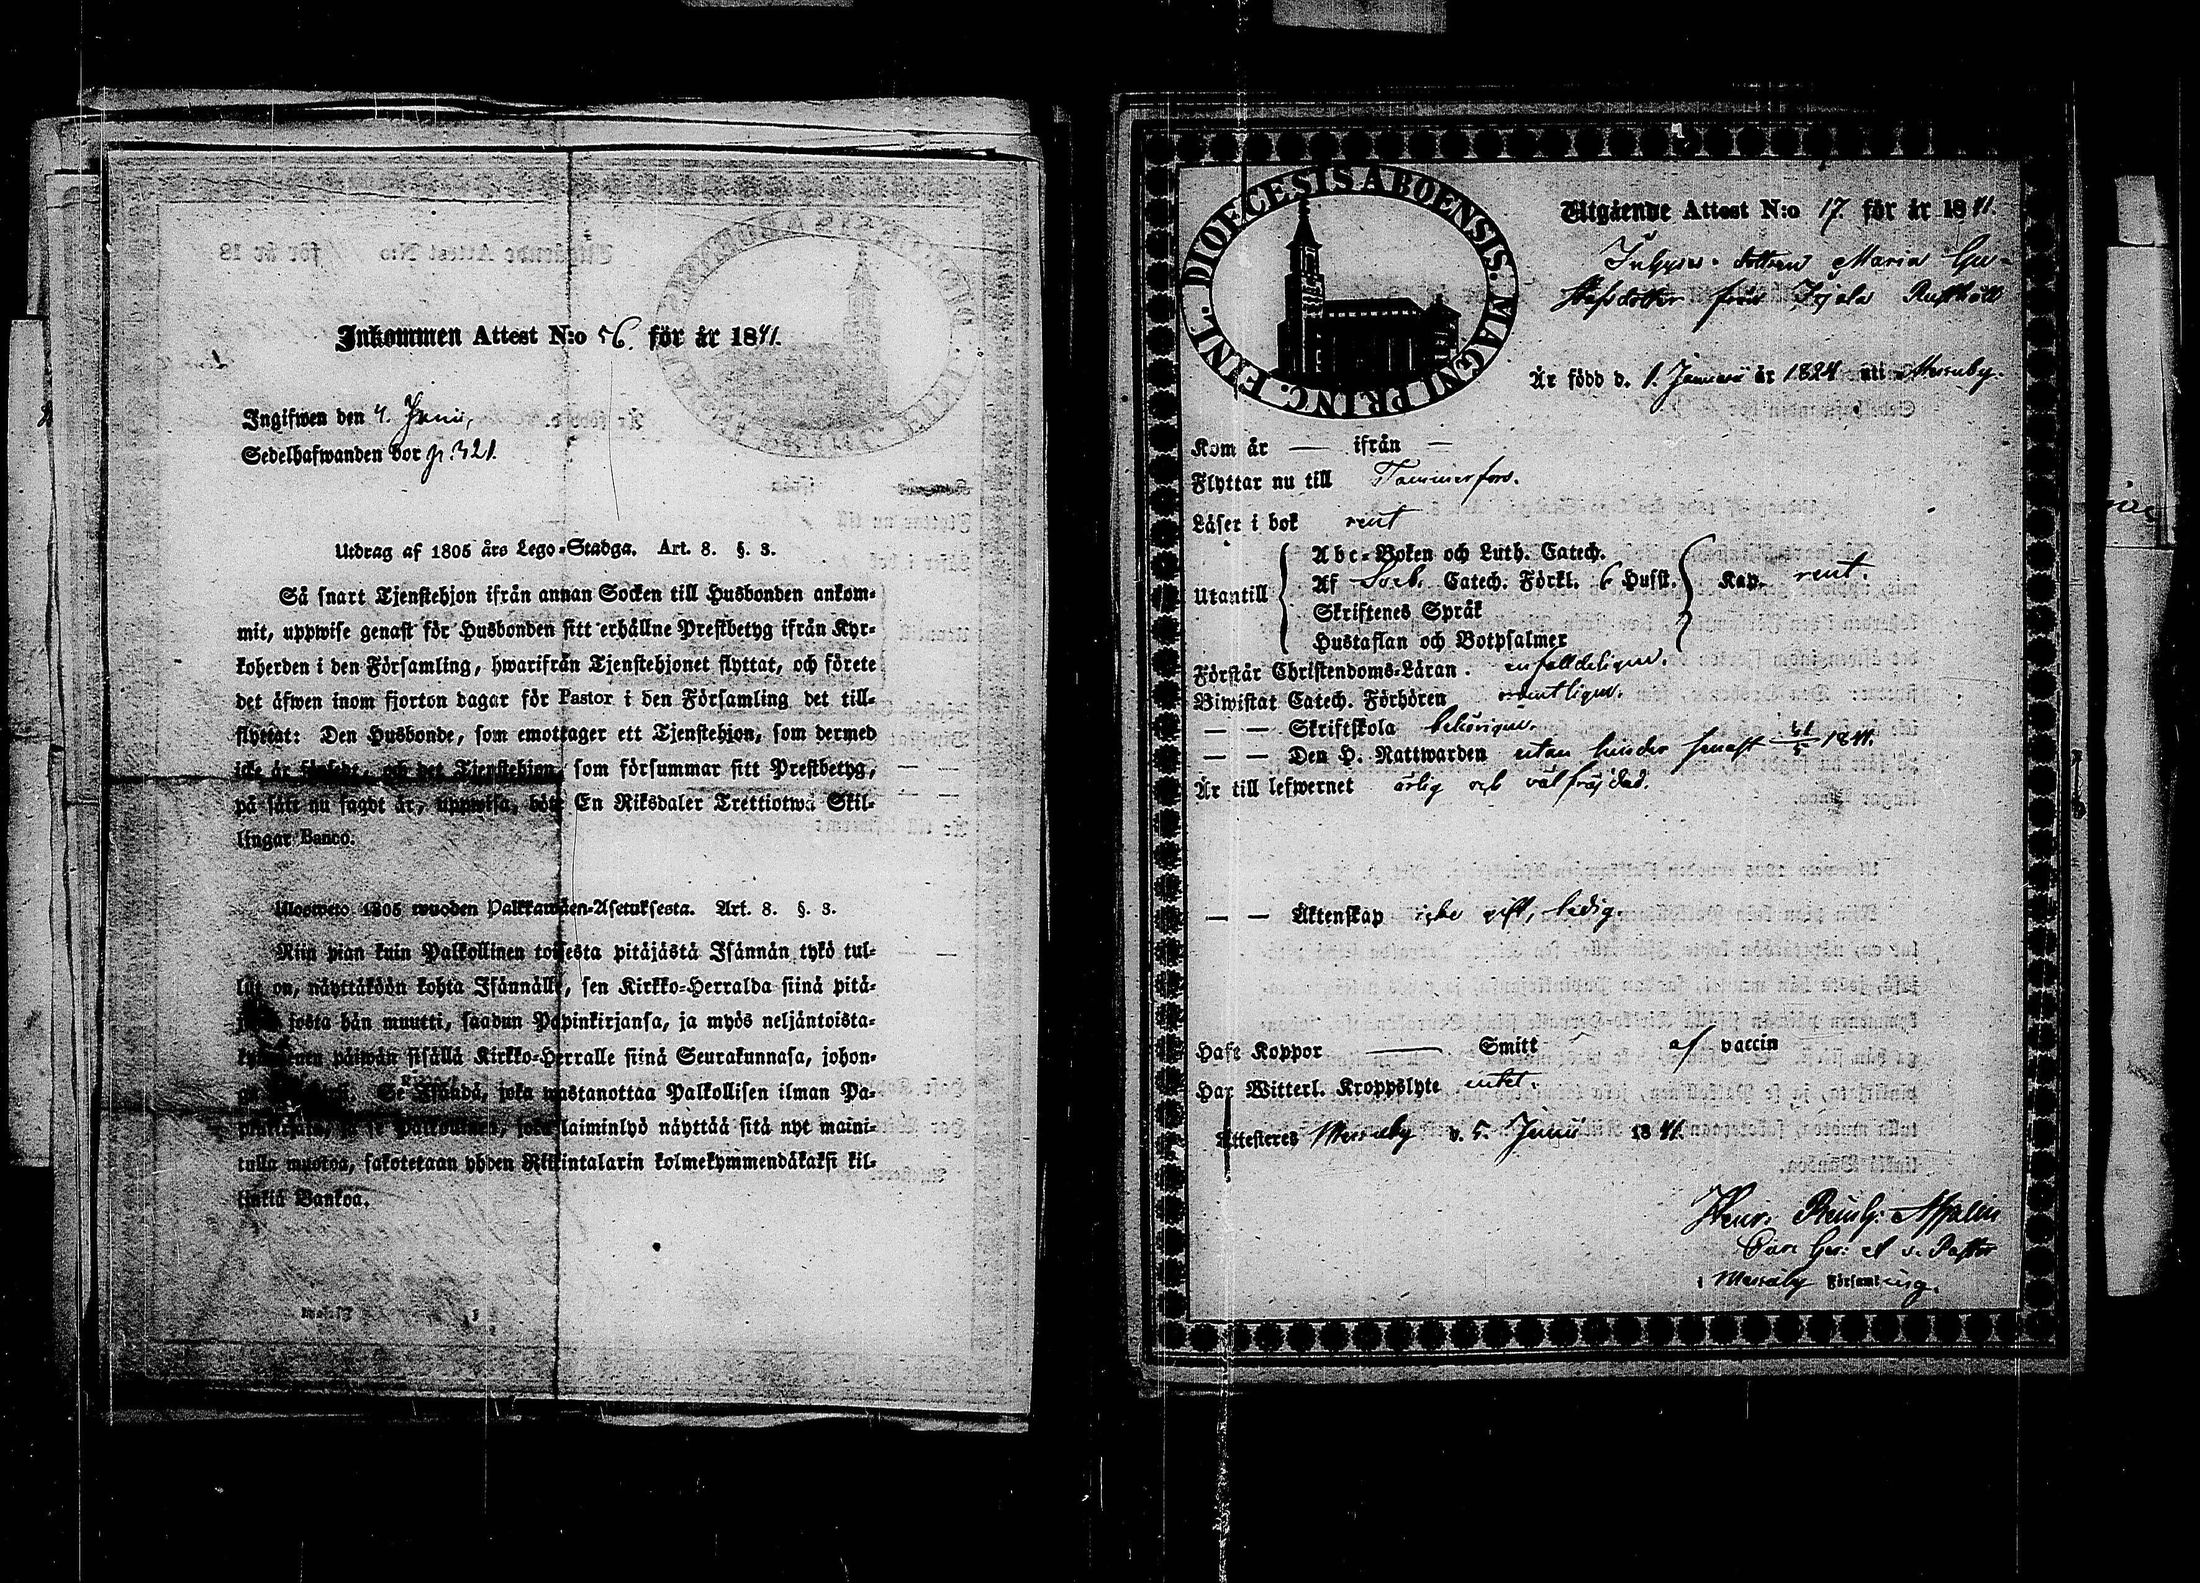 Inkommen Attest N:o 56. för år 1841.
Ingifwen den 4. Junii,
Sedelhafwanden bor p. 321.
Utdrag af 1805 års Lego-Stadga. Art. 8. §. 3.
Så snart Tjenstehjon ifrån annan Socken till Husbonden ankom-
mit, uppwise genast för Husbonden sitt erhållne Prestbetyg ifrån Kyr-
koherden i den Församling, hwarifrån Tjenstehjonet flyttat, och förete
det äfwen inom fjorton dagar för Pastor i den Församling det till-
flyttat: Den Husbonde, som emottager ett Tjenstehjon, som dermed
icke är försedt, och det Tjenstehjon, som försummar sitt Prestbetyg,
på sätt nu sagdt är, uppwisa, böte En Riksdaler Trettiotwå Skil-
lingar Banco.
Ulosweto 1805 wuoden Palkkawäen-Asetuksesta. Art. 8. §. 3.
Niin pian kuin Palkollinen toisesta pitäjästä Isännän tykö tul-
lut on, näyttäköön kohta Isännälle, sen Kirkko-Herralda siinä pitä-
josta hän muutti, saadun Papinkirjansa, ja myös neljäntoista-
kymmenen päiwän sisällä Kirkko-Herralle siinä Seurakunnasa, johon-
Se Isändä, joka wastanottaa Palkollisen ilman Pa-
pinkirjata, ja se Palkollinen, joka laiminlyö näyttää sitä nyt maini-
tulla muotoa, sakotetaan yhden Riikintalarin kolmekymmendäkaksi kil-
linkiä Bankoa.
DIOECESIS ABOENSIS. MAGNI PRINC. FINL.
Utgående Attest N:o 17. för år 1841.
dottren Maria Gu-
stafsdotter från Rusthåll
Är född d. 1. Januarii år 1824 uti Messuby.
Kom år — ifrån —
Flyttar nu till Tammerfors.
Läser i bok rent
Utantill
Abc-Boken och Luth. Catech.
Af Sveb. Catech. Förkl. 6 Hufst. Kap. rent.
Skriftenes Språk
Hustaflan och Botpsalmer
Förstår Christendoms-Läran. enfalldeligen.
Biwistat Catech. Förhören ordentligen.
— — Skriftskola behörigen.
— — Den H. Nattwarden utan hinder senast 1841.
Är till lefwernet ärlig och välfräjdad.
— — Äktenskap icke gift, ledig.
Haft Koppor — Smitt af vaccin
Har Witterl. Kroppslyte intet.
Attesteres Messuby d. 5. Junii 1841.
Henr. Reinh:
v. Pastor
i Messuby Församling.